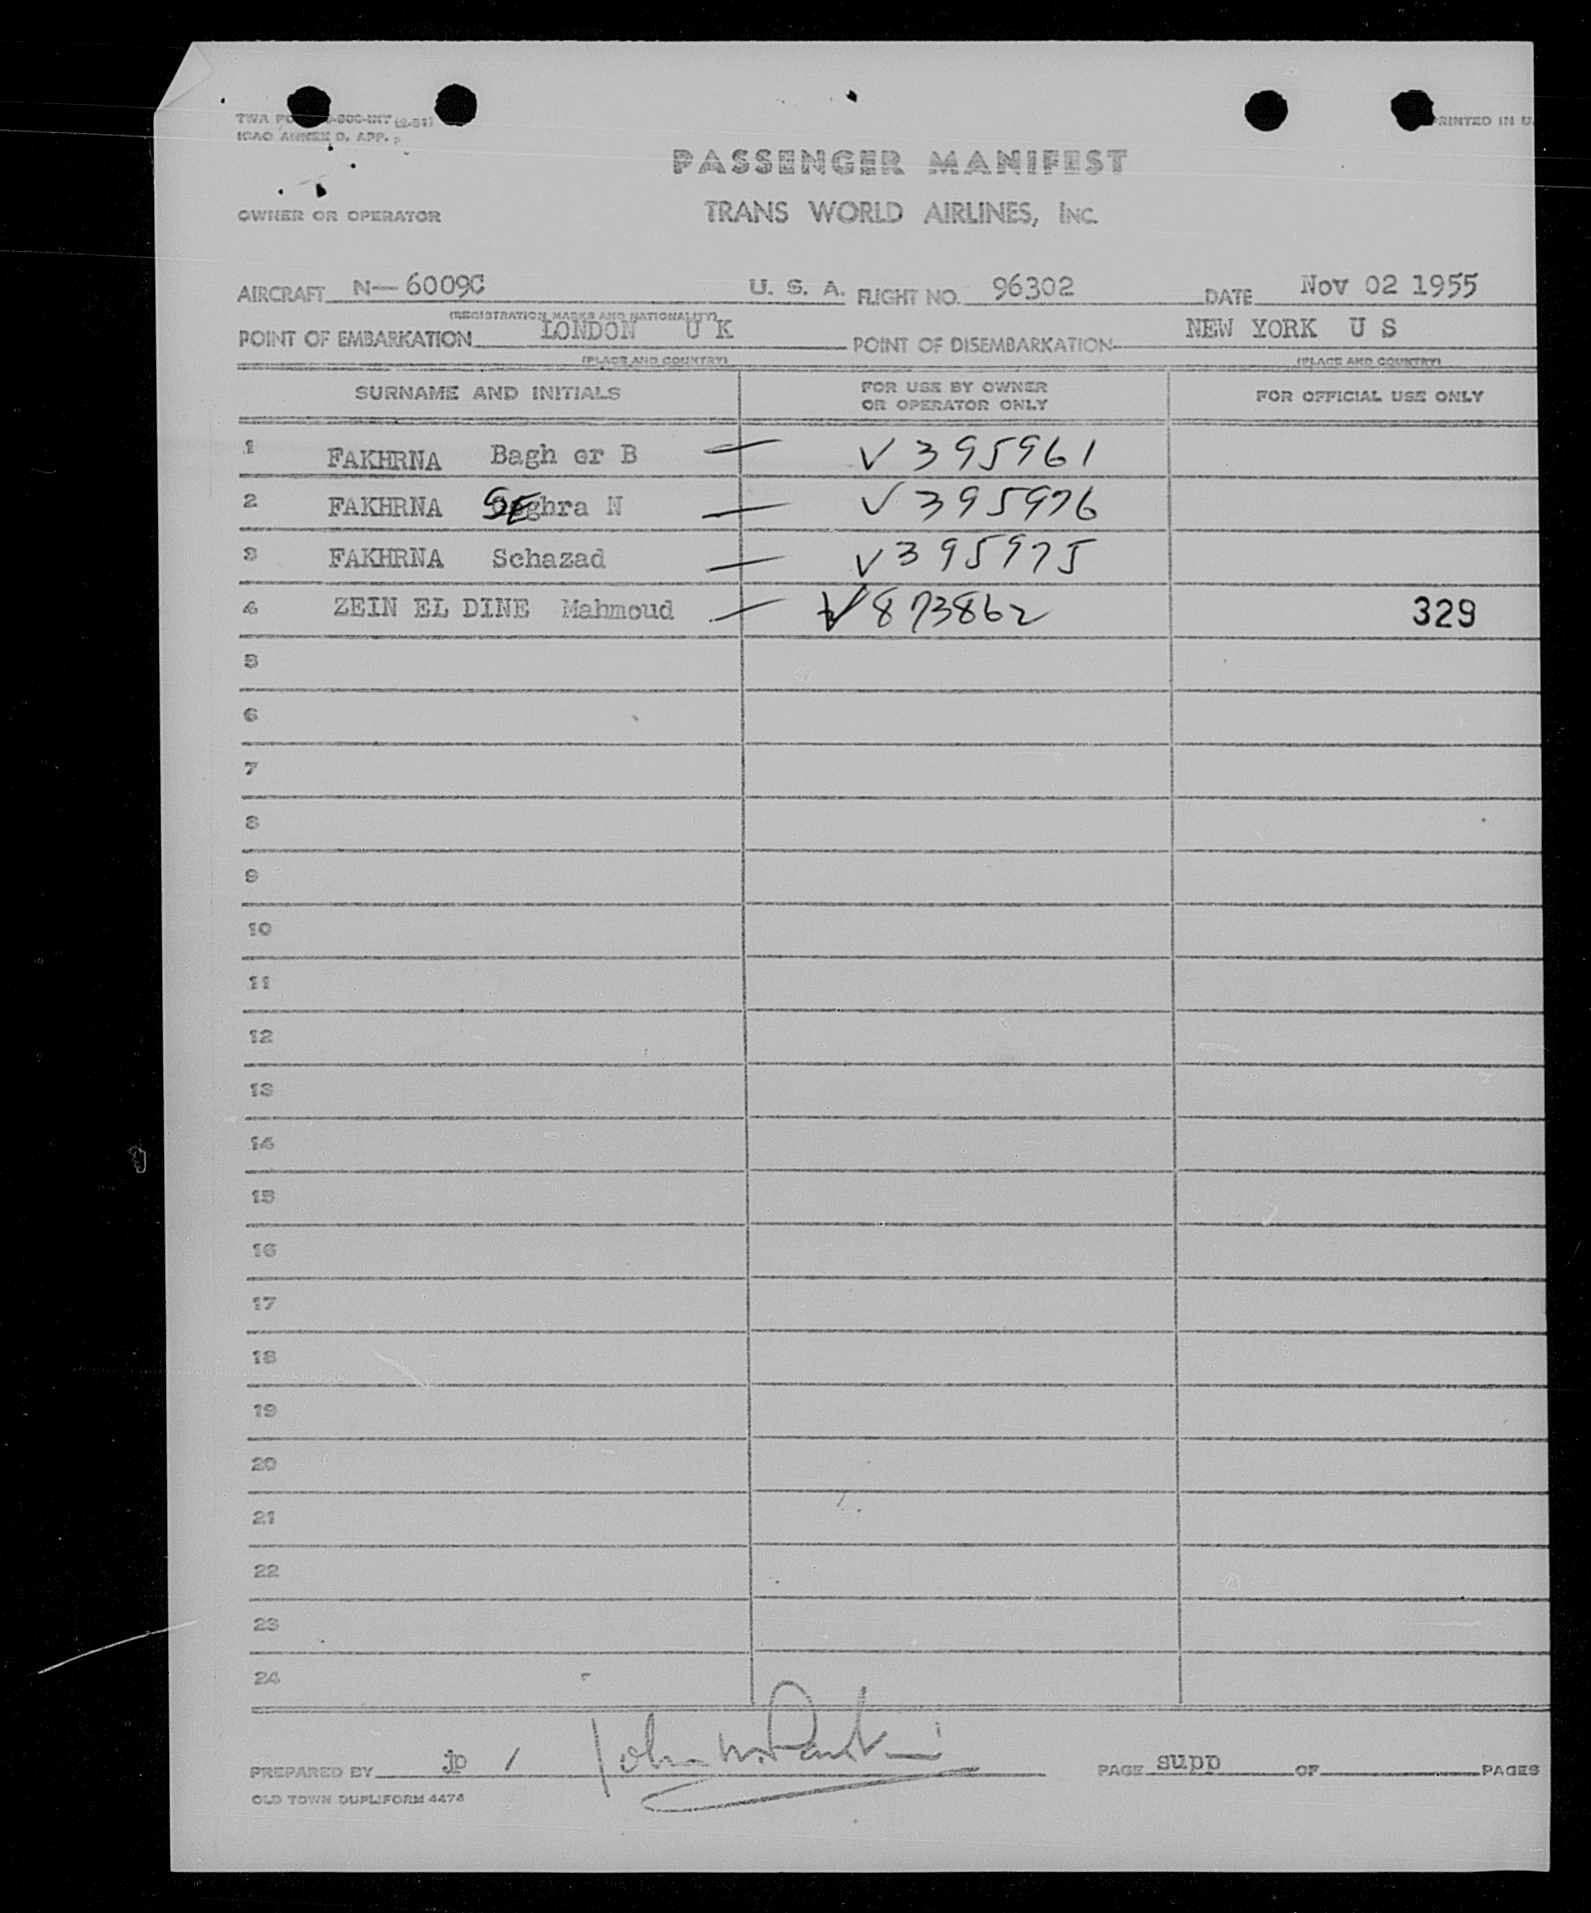 TWA FO -800-INT (2-51)
ICAO ANNEX 9. APP.
PRINTED IN U.
PASSENGER MANIFEST
OWNER OR OPERATOR
TRANS WORLD AIRLINES, INC.
AIRCRAFT N—6009C U. S. A. FLIGHT NO. 96302 DATE Nov 02 1955
(REGISTRATION MARKS AND NATIONALITY)
POINT OF EMBARKATION LONDON U K POINT OF DISEMBARKATION NEW YORK U S
(PLACE AND COUNTRY) (PLACE AND COUNTRY)
SURNAME AND INITIALS FOR USE BY OWNER OR OPERATOR ONLY FOR OFFICIAL USE ONLY
1 FAKHRNA Bagh er B — V 395961
2 FAKHRNA SEghra N — V 395976
3 FAKHRNA Schazad — V 395975
4 ZEIN EL DINE Mahmoud — V 873862 329
5
6
7
8
9
10
11
12
13
14
15
16
17
18
19
20
21
22
23
24
PREPARED BY jp / John PAGE supp OF PAGES
OLD TOWN DUPLIFORM 4474